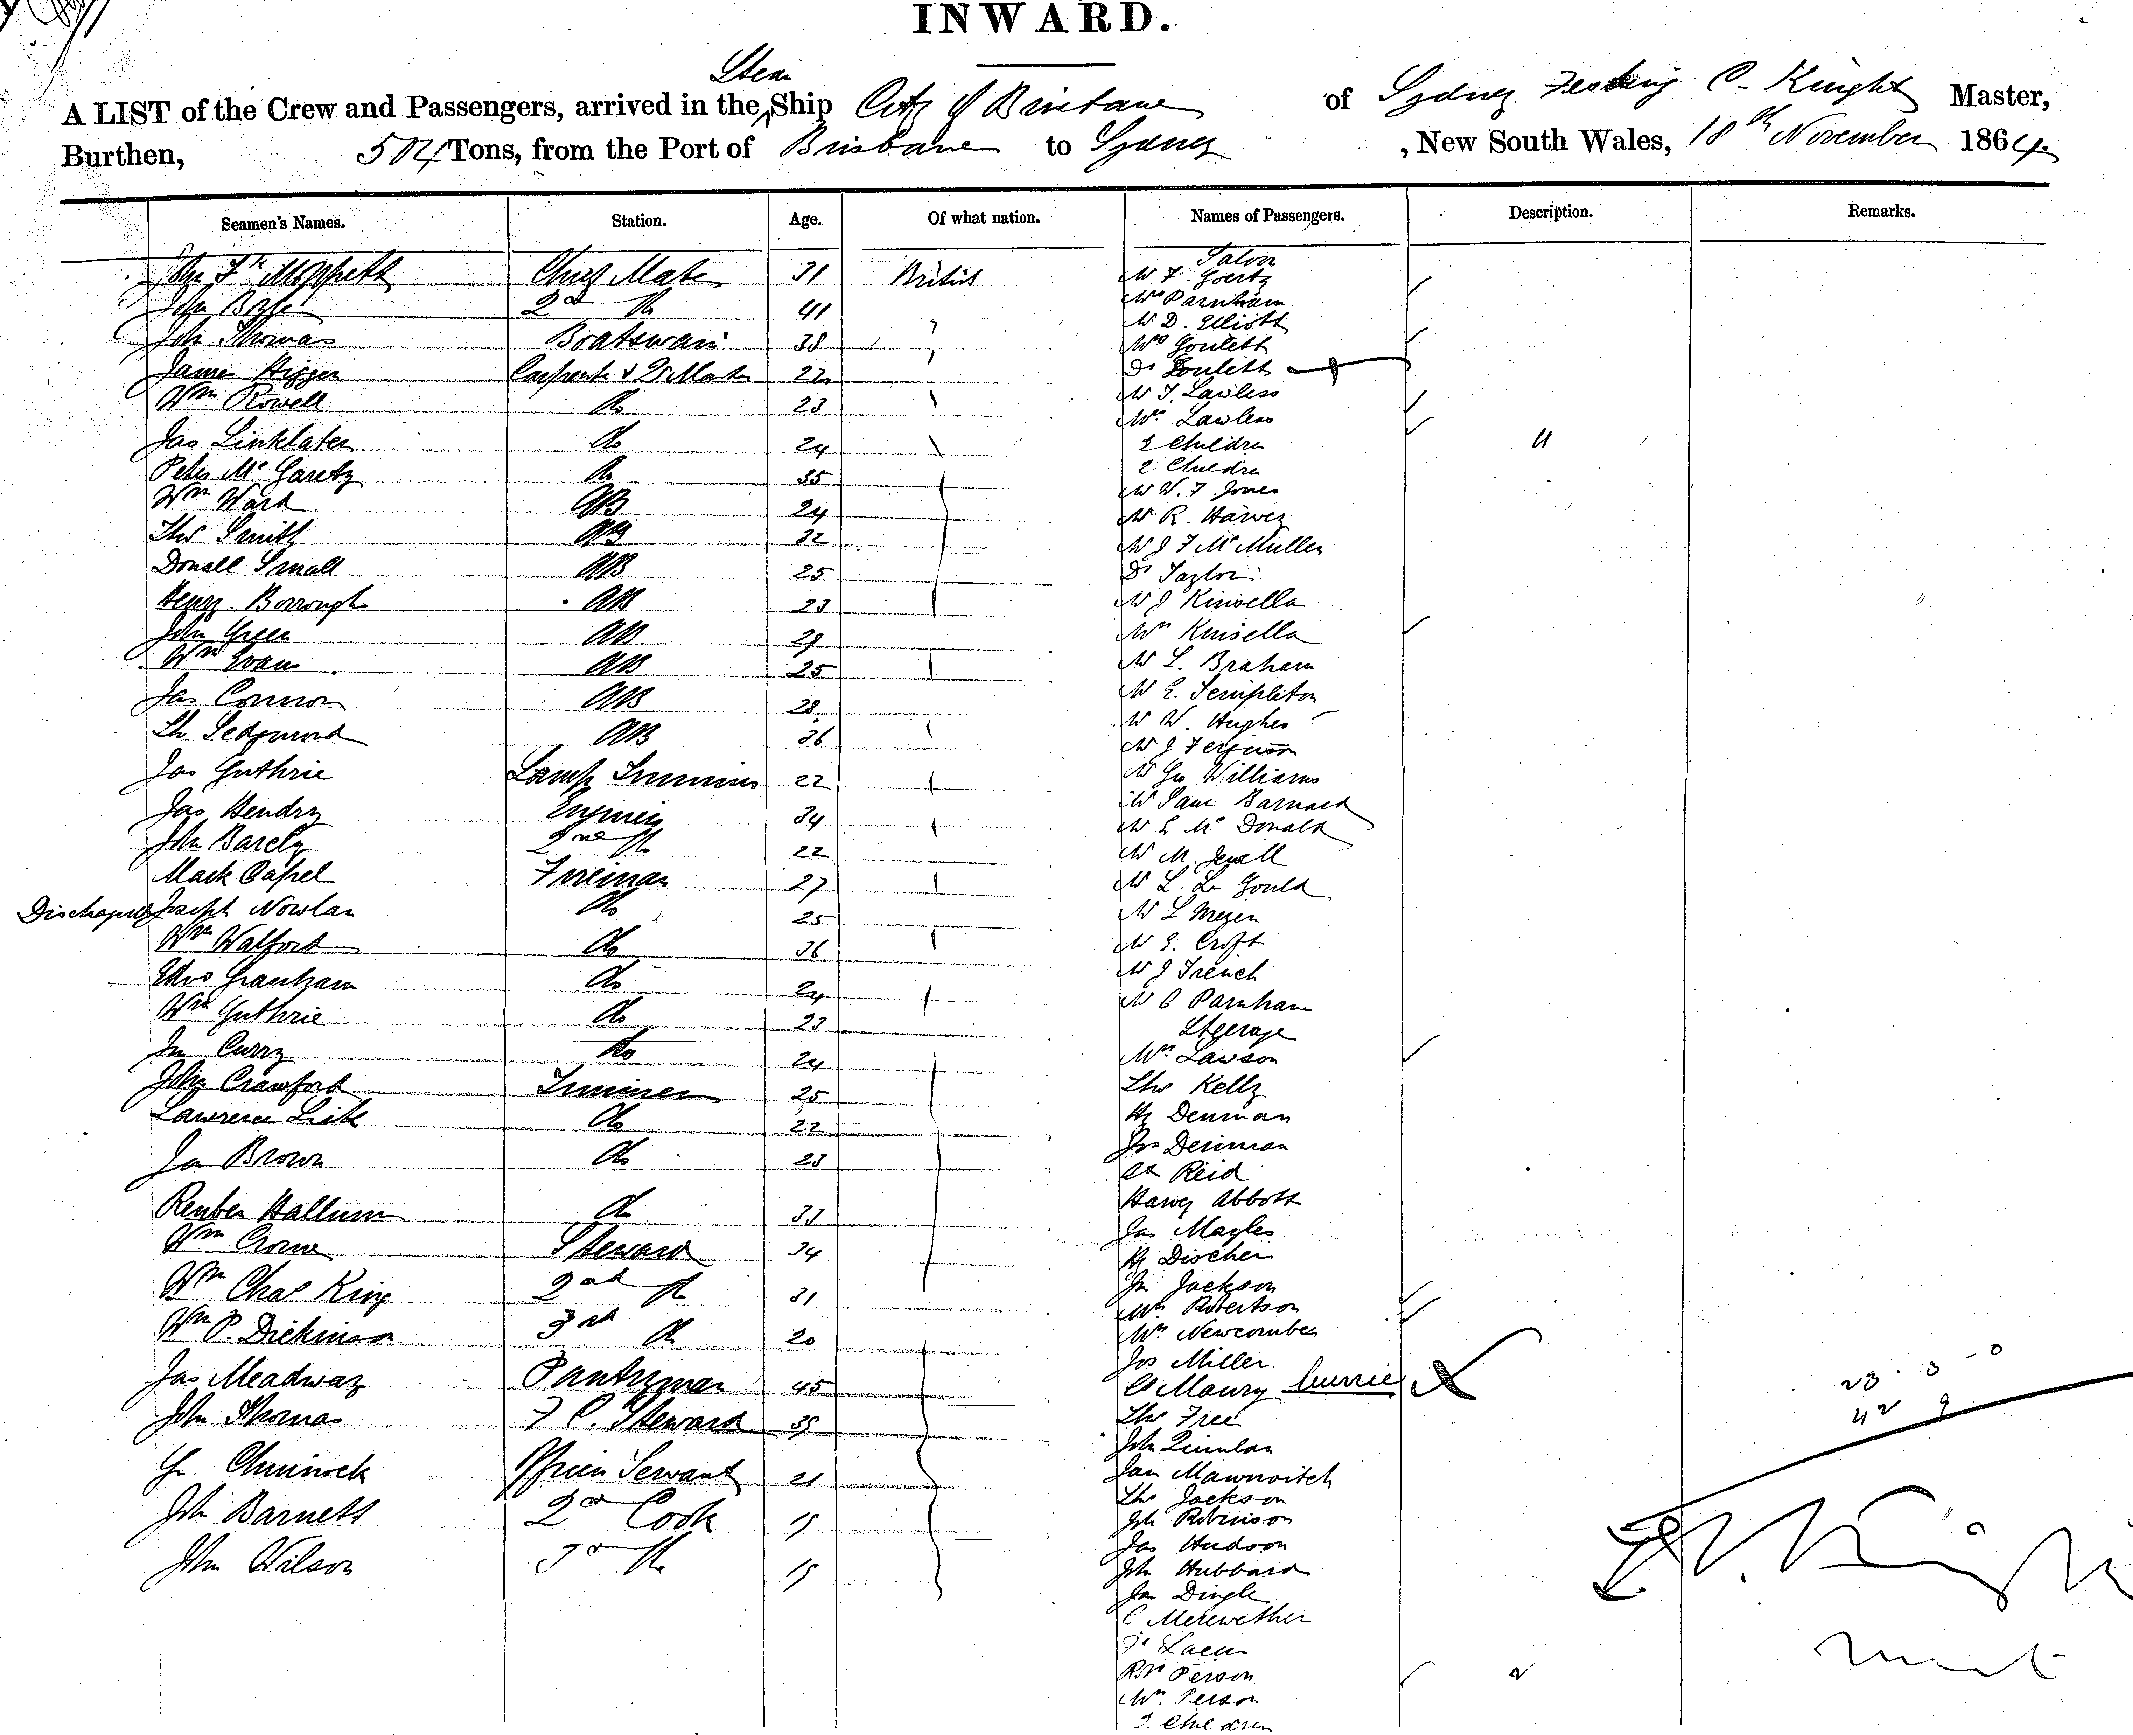 INWARD.
A LIST of the Crew and Passengers, arrived in the Ship City of Brisbane of Sydney C. Knight Master,
Burthen, 504 Tons, from the Port of Brisbane to Sydney , New South Wales, 18th November 1864
Seamen's Names. Station. Age. Of what nation. Names of Passengers. Description. Remarks.
Salon
Chief Mate 31 British Mr F. Goertz
2nd Do 41 Mrs Parnham
Mr D. Elliott
Joh Thomas Boatswain 38 Mrs Goulett
James 22 Dr Goulett
Wm Rowell Do 23 Mr J. Lawless
Mrs Lawless
Jas Linklater Do 24 2 Children 4
2 Children
Peter Mc Garety Do 35 Mr W. F Jones
Wm Ward AB 24 Mr R. Harvey
Thos Smith AB 32 Mr J F McMullen
Donall Small AB 25 Dr Taylor
Henry Borrough AB 23 Mr J Kinsella
John Green AB 29 Mrs Kinsella
Wm Evans AB 25 Mr L. Braham
Jas Connor AB 28 Mr E. Templeton
Mr W. Hughes
Th Sedgwood AB 36 Mr J Ferguson
Jas Guthrie Lamp Trimmer 22 Mr Geo Williams
Mr Saml Barnard
Jas Hendry 34 Mr E McDonald
Joh Barely 2nd Do 22 Mr M. Jewell
Mark Capel Fireman 27 Mr L. Le Gould
Joseph Nowlan Do 25 Mr L Meyer
Wm Walford Do 36 Mr E. Croft
Mr J French
Thos Grantham Do 24 Mr C Parnham
Wm Guthrie Do 23 Steerage
Jas Curry Do 24 Mrs Lawson
John Crawford Trimmer 25 Thos Kelly
Lawrence Do 22 Hy Denman
Jos Denman
Jas Brown Do 23 Reid
Harvey Abbott
Reuben Hallum Do 33 Jas Mayles
Wm Crowe Steward 34 Hy Discher
Jn Jackson
Wm Chas King 2nd Do 31 Mrs Robertson
Wm P. Dickinson 3rd Do 20 Mrs Newcombe
Jos Miller 23 . 3 - 0
Jas Meadway Pantryman 45 C Maury Currie 42 9
John Thomas F C. Steward 35 Thos Free
John Quinlan
Servant 21
Thos Jackson
Joh Barnett 2nd Cook 19 Joh Robinson
Jas Hudson
John Wilson 3rd Do 19 Joh Hubbard
Jas Dingle
C Merewether
Person 2
Mrs Person
2 Children